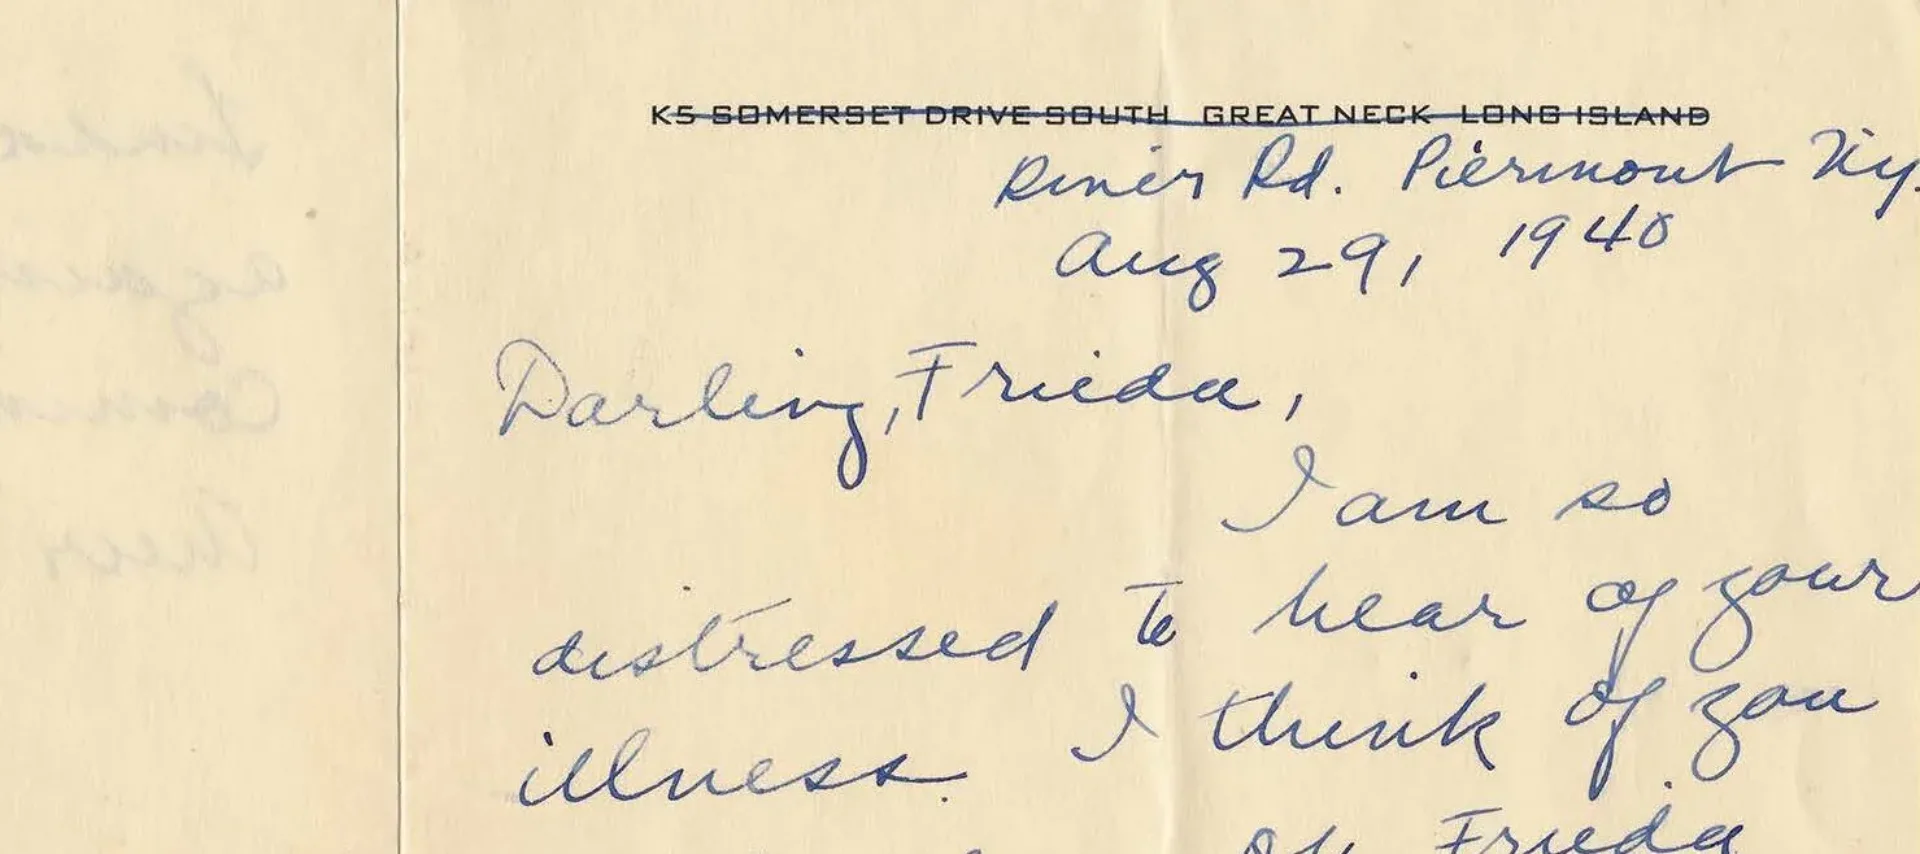 K5 SOMERSET DRIVE SOUTH GREAT NECK LONG ISLAND
River Rd. Piermont Ny.
Aug 29, 1940
Darling, Frieda,
I am so
distressed to hear of your
illness. I think of you
Frieda